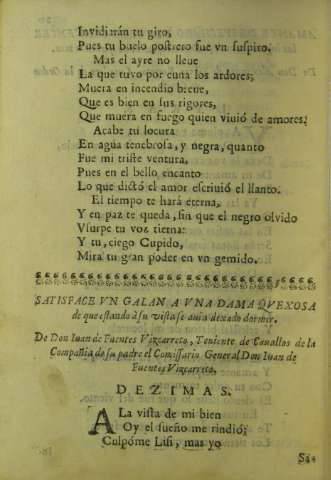 Invidiarán tu giro,
Pues tu buelo postrero fue vn suspiro.
Mas el ayre no lleue
La que tuvo por cuna los ardores;
Muera en incendio breue,
Que es bien en sus rigores,
Que muera en fuego quien viuió de amores;
Acabe tu locura
En agua tenebrosa, y negra, quanto
Fue mi triste ventura,
Pues en el bello encanto
Lo que dictó el amor escriuió el llanto.
El tiempo te hará eterna,
Y en paz te queda, sin que el negro olvido
Vsurpe tu voz tierna:
Y tu, ciego Cupido,
Mira tu gran poder en vn gemido.
SATISFACE VN GALAN A VNA DAMA QVEXOSA
de que estando à su vista se auia dexado dormir.
De Don Iuan de Fuentes Vizcarreto, Teniente de Cauallos de la
Compañia de su padre el Comissario General Don Iuan de
Fuentes Vizcarreto.
DEZIMAS.
A La vista de mi bien
Oy el sueño me rindió;
Culpóme Lisi, mas yo
Sa-